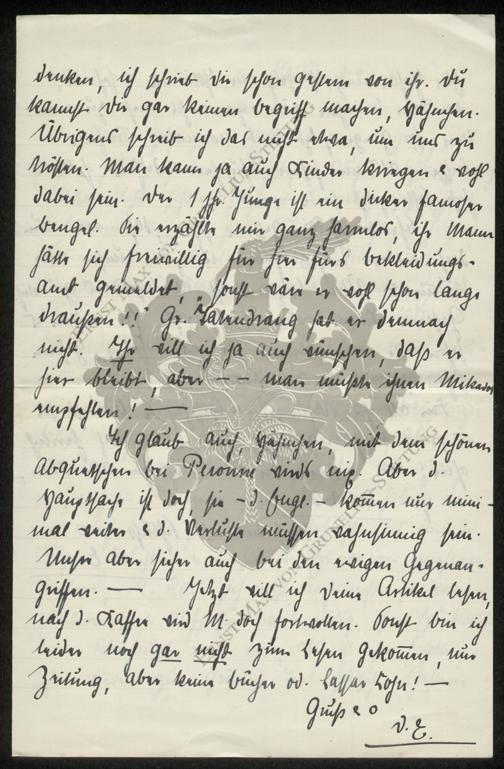 denken, ich schrieb Dir schon gestern von ihr. Du
kannst Dir gar keinen Begriff machen, Häschen.
Übrigens schreib ich das nicht etwa, um uns zu
trösten. Man kann ja auch Kinder kriegen & wohl
dabei sein. Der 1 jhr. Junge ist ein dicker famoser
Bengel. Sie erzählte mir ganz harmlos, ihr Mann
hätte sich freiwillig für hier fürs Bekleidungs-
amt gemeldet, "sonst wär er wohl schon lange
draußen!!" Gr. Tatendrang hat er demnach
nicht. Ihr will ich ja auch wünschen, daß er
hier bleibt, aber -- man müßte ihnen Mikados
empfehlen! —
Ich glaub auch, Häschen, mit dem schönen
Abquetschen bei Peronne wirds nix. Aber d.
Hauptsache ist doch, sie - d. Engl. - kommen nur mini-
mal weiter & d. Verluste müssen wahnsinnig sein.
Unsre aber sicher auch bei den ewigen Gegenan-
griffen. — Jetzt will ich Deine Artikel lesen,
nach d. Kaffee wird M. doch fortwollen. Sonst bin ich
leider noch gar nicht zum Lesen gekommen, nur
Zeitung, aber keine Bücher od. Cassar Cohn! —
Gruß & o
D. E.
ERNST MAX VON GRUNELIUS-STIFTUNG
ERNST MAX VON GRUNELIUS-STIFTUNG